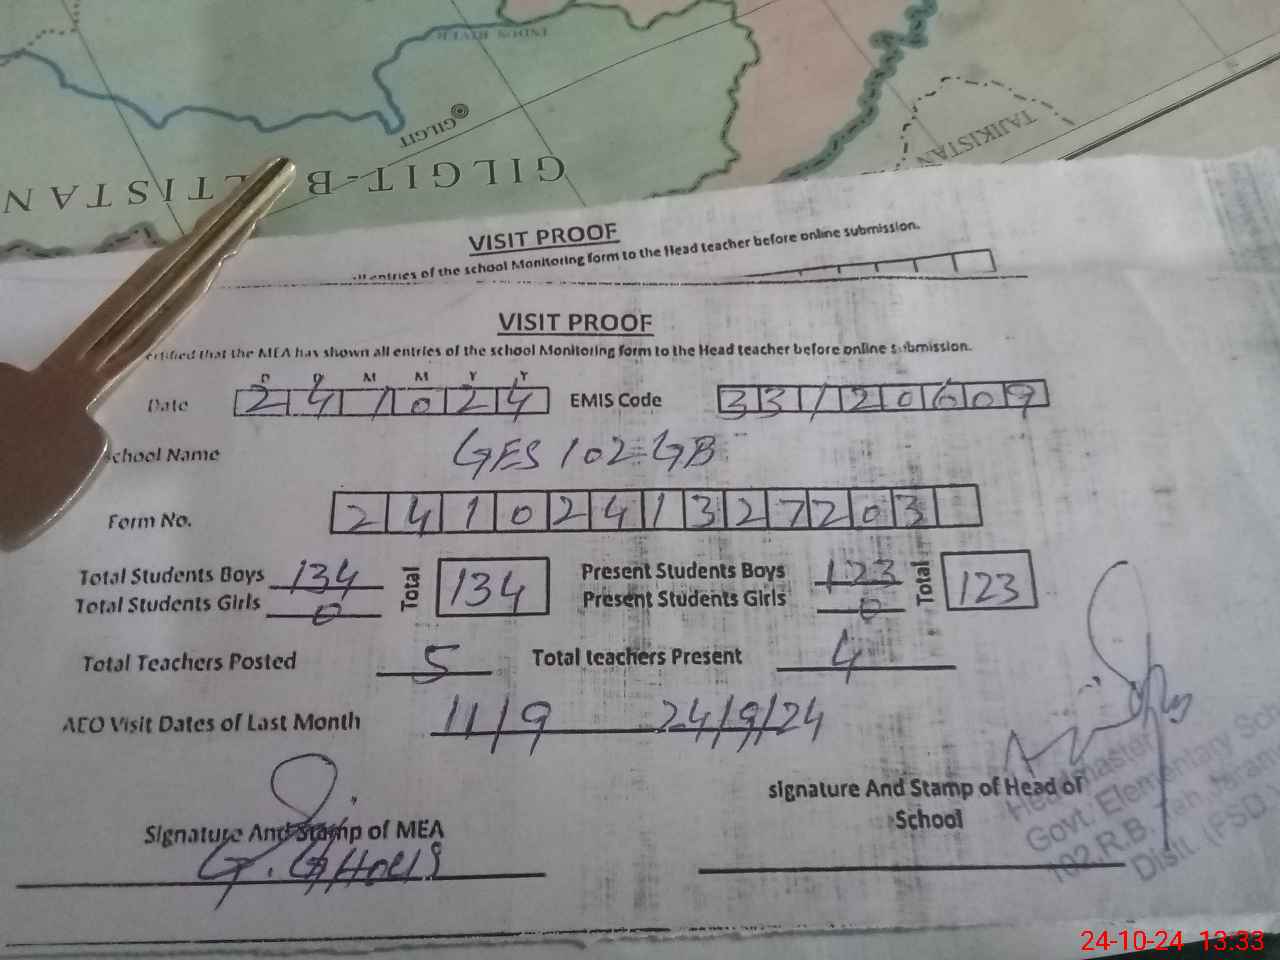 INDUS RIVER
GILGIT
TAJIKISTAN
GILGIT-B LTISTAN
VISIT PROOF
entries of the school Monitoring form to the Head teacher before online submission.
VISIT PROOF
ertified that the MEA has shown all entries of the school Monitoring form to the Head teacher before online submission.
D D M M Y Y
Date 2 4 1 0 2 4 EMIS Code 3 3 1 2 0 6 0 9
chool Name GES 102 GB
Form No. 2 4 1 0 2 4 1 3 2 7 2 0 3
Total Students Boys 134 Total 134 Present Students Boys 123 Total 123
Total Students Girls 0 Present Students Girls 0
Total Teachers Posted 5 Total teachers Present 4
AEO Visit Dates of Last Month 11/9 24/9/24
Signature And Stamp of MEA
signature And Stamp of Head of School
Headmaster
Govt. Elementary Sch
102 R.B.
Distt. (FSD
24-10-24 13:33